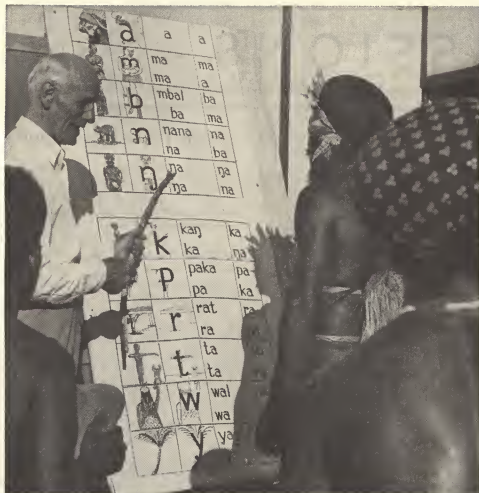 a a a
m ma ma
ma a
b mbal ba
ba ma
n nana na
na ba
ŋ ŋa ŋa
ŋa na
k kaŋ ka
ka ŋa
p paka pa
pa ka
r rat ra
ra
t ta
ta
w wal
wa
y ya